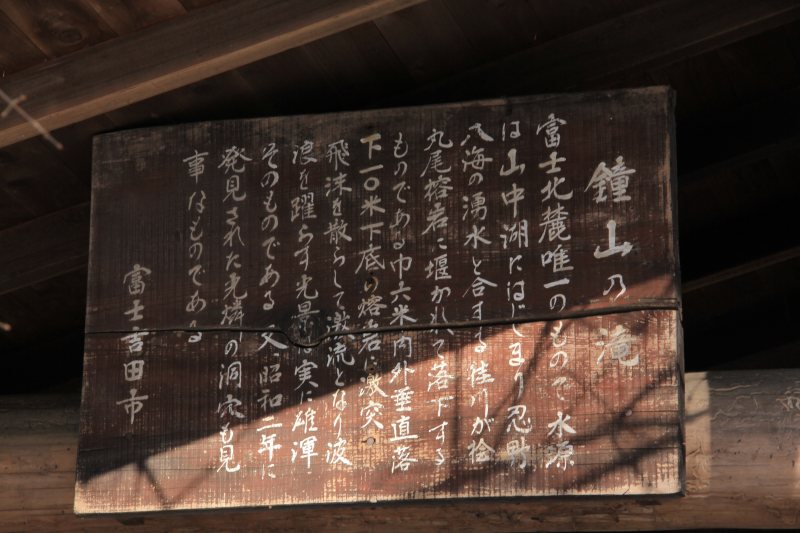 鐘山の滝
富士北麓唯一のもので水源
は山中湖にはじまり忍野
八海の湧水と合する桂川が桧
丸尾熔岩に堰かれて落下する
ものである巾六米内外垂直落
下一〇米下底の熔岩に激突
飛沫を散らして激流となり波
浪を躍らす光景は実に雄渾
そのものである又、昭和二年に
発見された光燐の洞穴も見
事なものである
富士吉田市